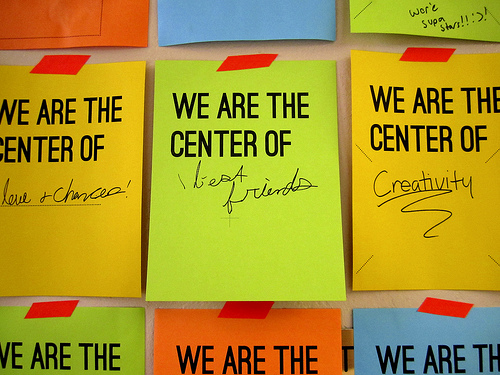 wor'e
supa
stars!!:>!
WE ARE THE
CENTER OF
love & chances!
WE ARE THE
CENTER OF
best
friends
WE ARE THE
CENTER OF
Creativity
WE ARE THE
WE ARE THE
T
WE ARE TH